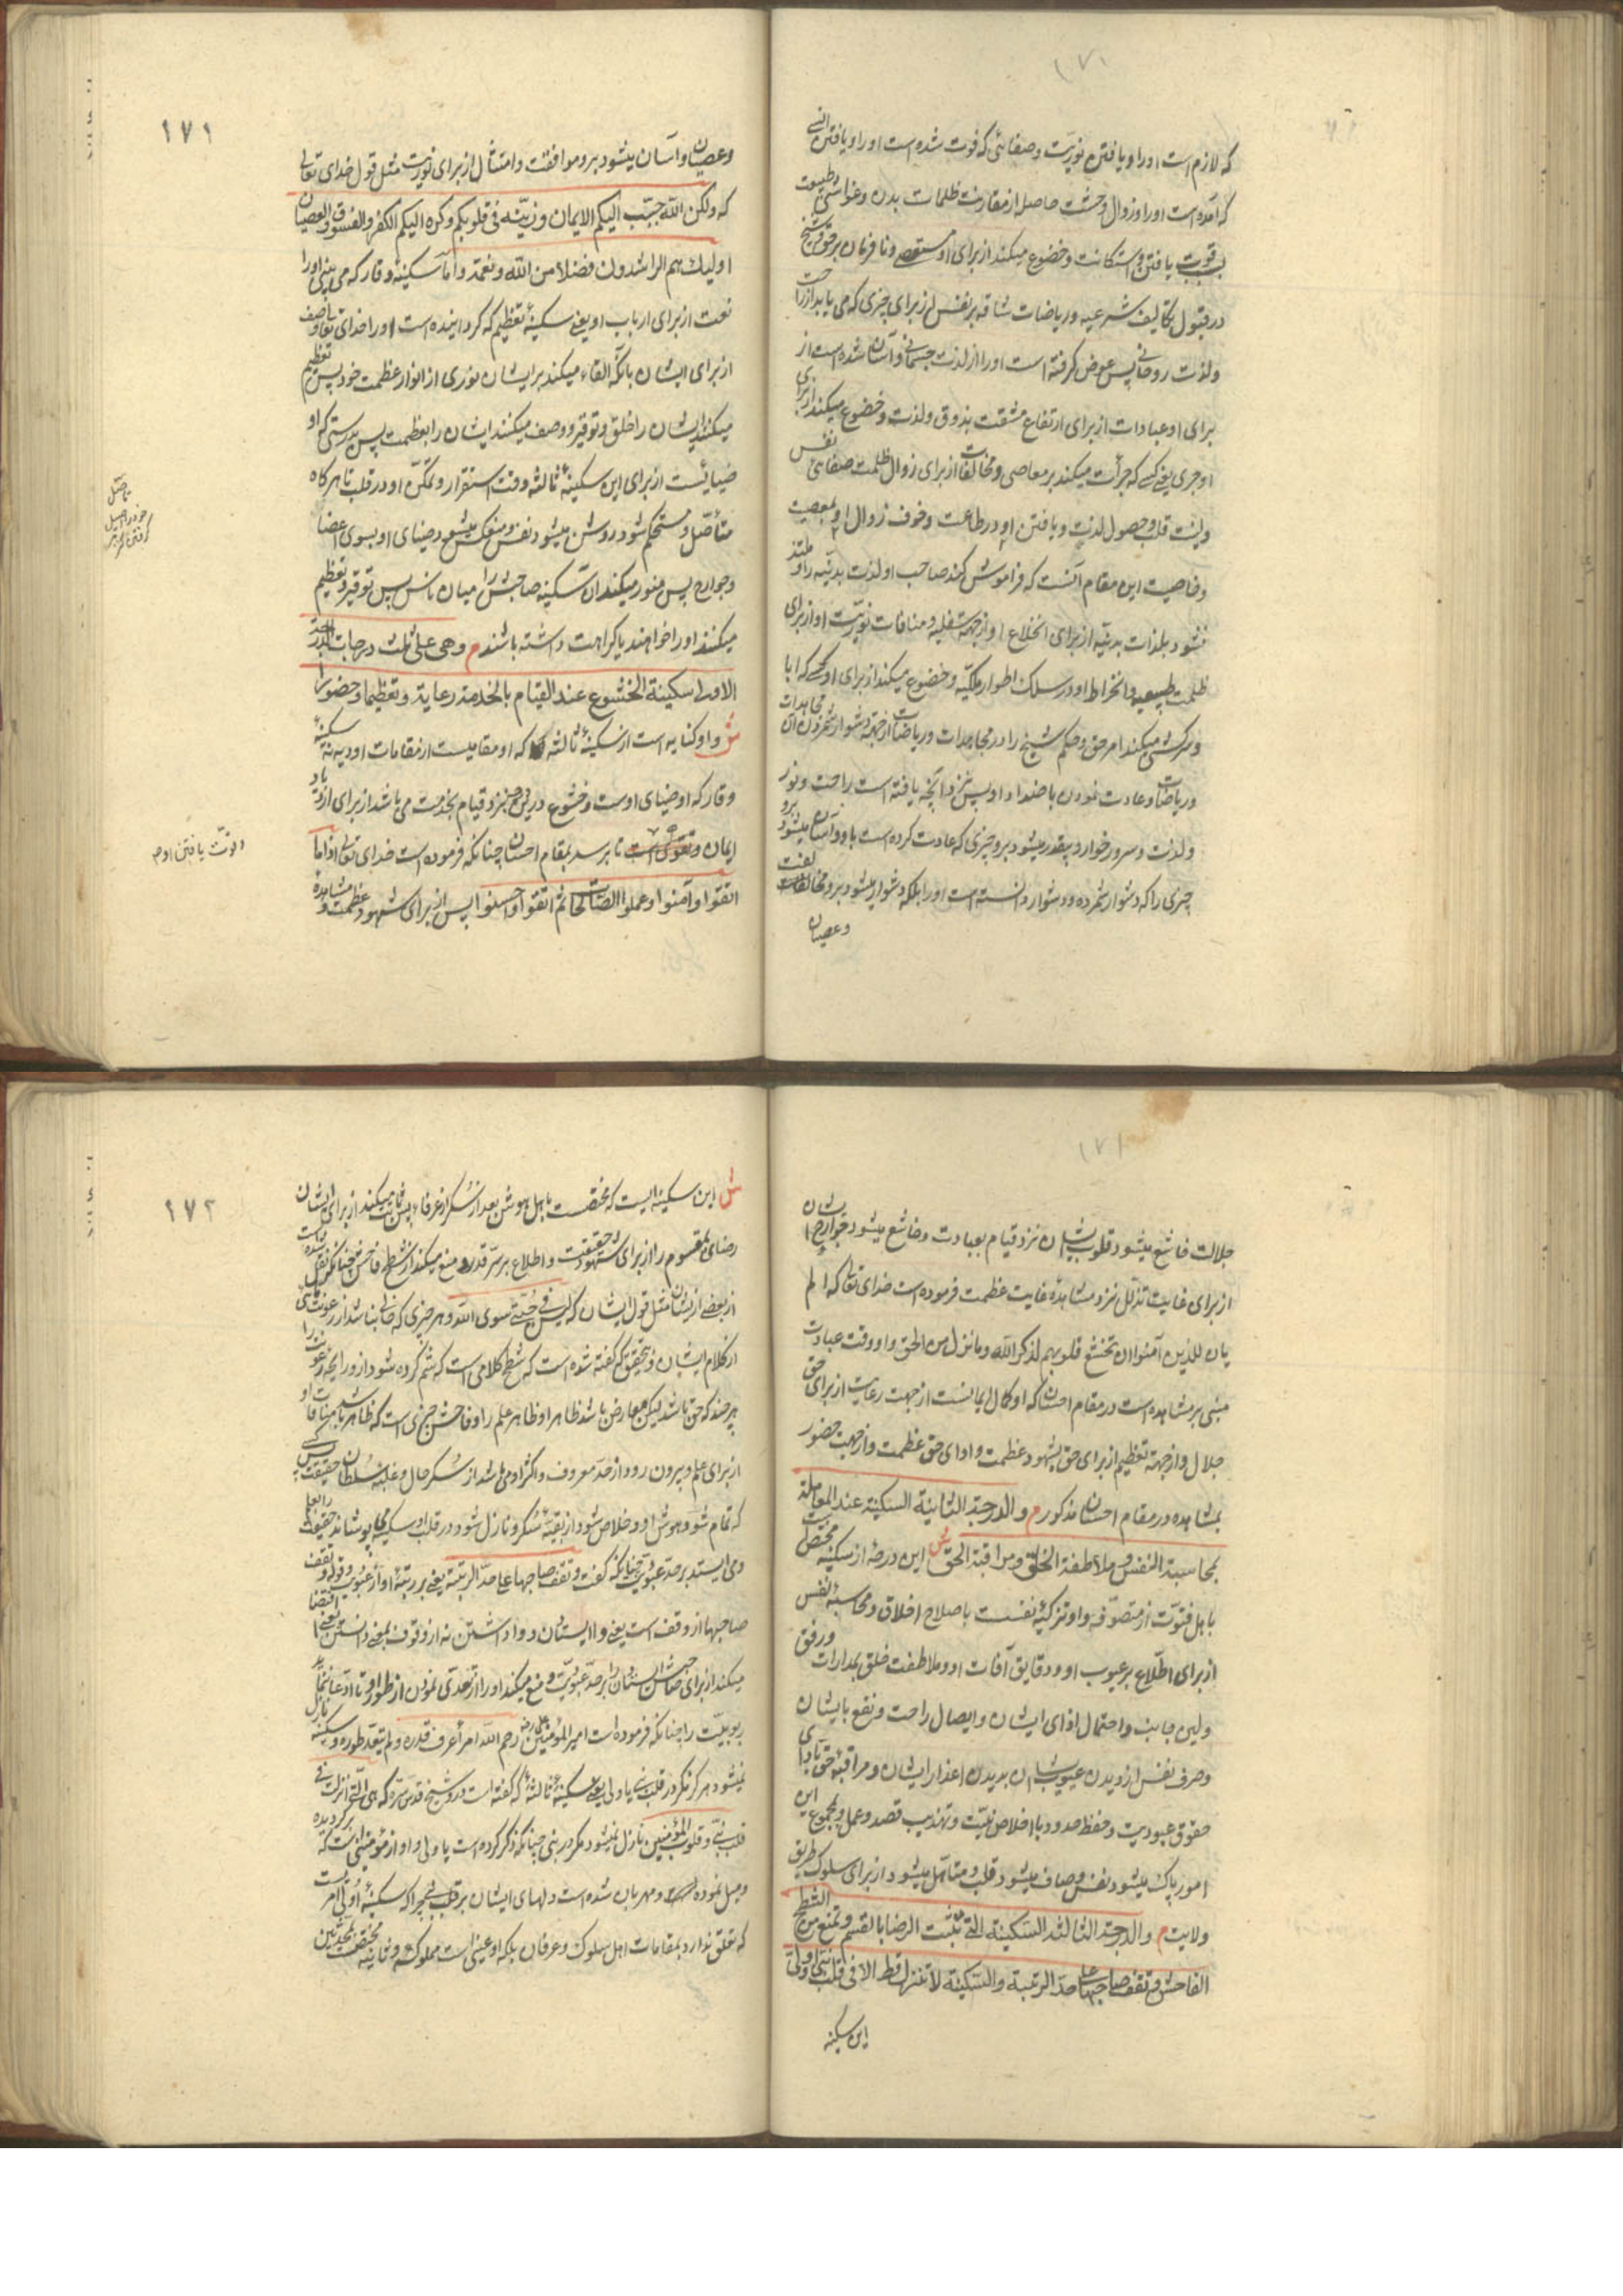 که لازم است او را و یافتن نوریت و صفائی که فوت شده است او را و یافتن انسی
که آمده است او را و زوال وحشت حاصل از مقارنت ظلمات بدن و غواشی طبیعت
بسبب قوت یافتن و استکانت و خضوع میکند از برای او مستعصی و نافرمان بر حق و شیخ
در قبول تکالیف شرعیه و ریاضات شاقه بر نفس از برای چیزی که می یابد از راحت
و لذت روحانی پس عوض گرفته است او را از لذت جسمانی و آسان شده است از
برای او عبادات از برای ارتفاع مشقت بذوق و لذت و خضوع میکند از برای
او جری یعنی کسی که جرأت میکند بر معاصی و مخالفات از برای زوال ظلمت صفات نفس
و لینت قلب و حصول لذت و یافتن او در طاعت و خوف زوال او بمعصیت
و خاصیت این مقام آنست که فراموش کند صاحب او لذت بدنیه را و ملتذ
نشود بلذات بدنیه از برای انخلاع او از جهه سفلیه و منافات نوریت او از برای
ظلمت طبیعیه و انخراط او در سلک اطوار ملکیه و خضوع میکند از برای او کسی که ابا
و سرکشی میکند امر حق و حکم شیخ را در مجاهدات و ریاضات از جهه دشوار شمردن آن مجاهدات
و ریاضات و عادت نمودن باضداد او پس نزد آنچه یافته است راحت و نور
و لذت و سرور خوار و بیقدر میشود برو چیزی که عادت کرده است باو و آسان میشود برو
چیزی را که دشوار شمرده و دشوار دانسته است او را بلکه دشوار میشود برو مخالفت
و عصیان
١٧١
و عصیان و آسان میشود برو موافقت و امتثال از برای نوریت مثل قول خدای تعالی
که ولکن الله حبب الیکم الایمان و زینه فی قلوبکم و کره الیکم الکفر و الفسوق و العصیان
اولیک هم الراشدون فضلا من الله و نعمة و اما سکینه وقار که می بینی او را
نعت از برای ارباب او یعنی سکینهٔ تعظیم که گردانیده است او را خدای تعالی وصف
از برای ایشان بانکه القاء میکند بر ایشان نوری از انوار عظمت خود پس تعظیم
میکنند ایشان را خلق و توقیر و وصف میکنند ایشان را بعظمت پس بدرستی که او
ضیائیست از برای این سکینهٔ ثالثه وقت استقرار و تمکن او در قلب تا هر گاه
متأصل و مستحکم شود روشن میشود نفس و منعکس میشود ضیای او بسوی اعضا
و جوارح پس منور میکند آن سکینه صاحبش را میان ناس پس توقیر و تعظیم
میکنند او را خواهند یا کراهت داشته باشند م و هی علی ثلث درجات الدرجة
الاولی سکینة الخشوع عند القیام بالخدمة رعایة و تعظیما و حضورا
ش و او کنایه است از سکینهٔ ثالثه که او مقامیست از مقامات اودیه نه سکینهٔ
وقار که او ضیای اوست و خشوع درین حین نزد قیام بخدمت می باشد از برای ازدیاد
ایمان و تقوی است تا برسد بمقام احسان چنانکه فرموده است خدای تعالی اذا ما
اتقوا و آمنوا و عملوا الصالحات ثم اتقوا و احسنوا پس از برای شهود عظمت و مشاهدهٔ
تأصل
خود را اصیل
گرفتن
و قوت یافتن او م
جلالت خاشع میشود قلوب ایشان نزد قیام بعبادت و خاشع میشود جوارح ایشان
از برای غایت تذلل نزد مشاهدهٔ غایت عظمت فرموده است خدای تعالی که الم
یان للذین آمنوا ان تخشع قلوبهم لذکر الله و ما نزل من الحق و او وقت عبادت
مبنی بر مشاهده است در مقام احسان که او کمال ایمانست از جهت رعایت از برای حق
جلال و از جهه تعظیم از برای حق شهود عظمت و ادای حق عظمت و از جهت حضور
بمشاهده در مقام احسان مذکور م و الدرجة الثانیة السکینة عند المعاملة
بمحاسبة النفس و ملاطفة الخلق و مراقبة الحق ش این درجه از سکینه مختص است
باهل فتوت از متصوفه و او تزکیهٔ نفسست باصلاح اخلاق و محاسبهٔ نفس
از برای اطلاع بر عیوب او و دقایق آفات او و ملاطفت خلق بمدارات و رفق
و لین جانب و احتمال اذای ایشان و ایصال راحت و نفع بایشان
و صرف نفس از دیدن عیوب ایشان بدیدن اعذار ایشان و مراقبهٔ حق بادای
حقوق عبودیت و حفظ حدود با اخلاص نیت و تهذیب قصد و عمل و بمجموع این
امور پاک میشود نفس و صاف میشود قلب و متاهل میشود از برای سلوک طریق
ولایت م و الدرجة الثالثة السکینة التی تثبت الرضا بالقسم و تمنع من الشطح
الفاحش و تقف صاحبها علی حد الرتبة و السکینة لا تنزل قط الا فی قلب نبی او ولی
این سکینه
١٧٢
ش این سکینه ایست که مختص است باهل هوش بعد از سکر از عرفا پس ثابت میکند از برای ایشان
رضای بمقسوم را از برای شهود حقیقت و اطلاع بر سر قدر و منع میکند از شطح فاحش چنانکه نقل شده است
از بعضی از ایشان مثل قول ایشان که لیس فی جبتی سوی الله و هر چیزی که خالی نباشد از رعونت
از کلام ایشان و بتحقیق که گفته شده است که شطح کلامی است که شم کرده شود از و رایحهٔ رعونت را
هر چند که حق باشد لیکن معارض باشد ظاهر او ظاهر علم را و فاحش چیزی است که ظاهر باشد منافات او
از برای علم و بیرون رود از حد معروف و اکثر او می باشد از سکر حال و غلبهٔ سلطان حقیقت پس کسی
که تمام شود هوش او و خلاص شود از بقیهٔ سکر و نازل شود در قلب او سکینه می پوشاند حقیقت را بعلم
و می ایستد بر حد عبودیت چنانکه گفت و تقف صاحبها علی حد الرتبة یعنی بر رتبهٔ او از عبودیت و قوله و تقف
صاحبها از وقف است یعنی وا ایستادن و وا داشتن نه از وقوف بمعنی دانستن یعنی اقتضا
میکند از برای صاحبش ایستادن را بر حد عبودیت و منع میکند او را از تعدی نمودن از طور او تا ادعا نماید
ربوبیت را چنانکه فرموده است امیر المؤمنین علی رضه رحم الله امرأ عرف قدره و لم یتعد طوره و سکینه نازل
نمیشود هرگز مگر در قلب نبی یا ولی یعنی سکینهٔ ثالثه که گفته است درو شیخ قدس سره که هی التی انزلت فی
قلب نبی و قلوب المؤمنین نازل نمیشود مگر در نبی چنانکه ذکر کرده است یا ولی و او از مؤمنینی است که گردیده
و میل نموده است و مهربان شده است دلهای ایشان بر قلب نبی چرا که سکینهٔ اولی امریست
که تعلق ندارد بمقامات اهل سلوک و عرفان بلکه او عینی است مملوکه و ثانیه مختص است بمحدثین